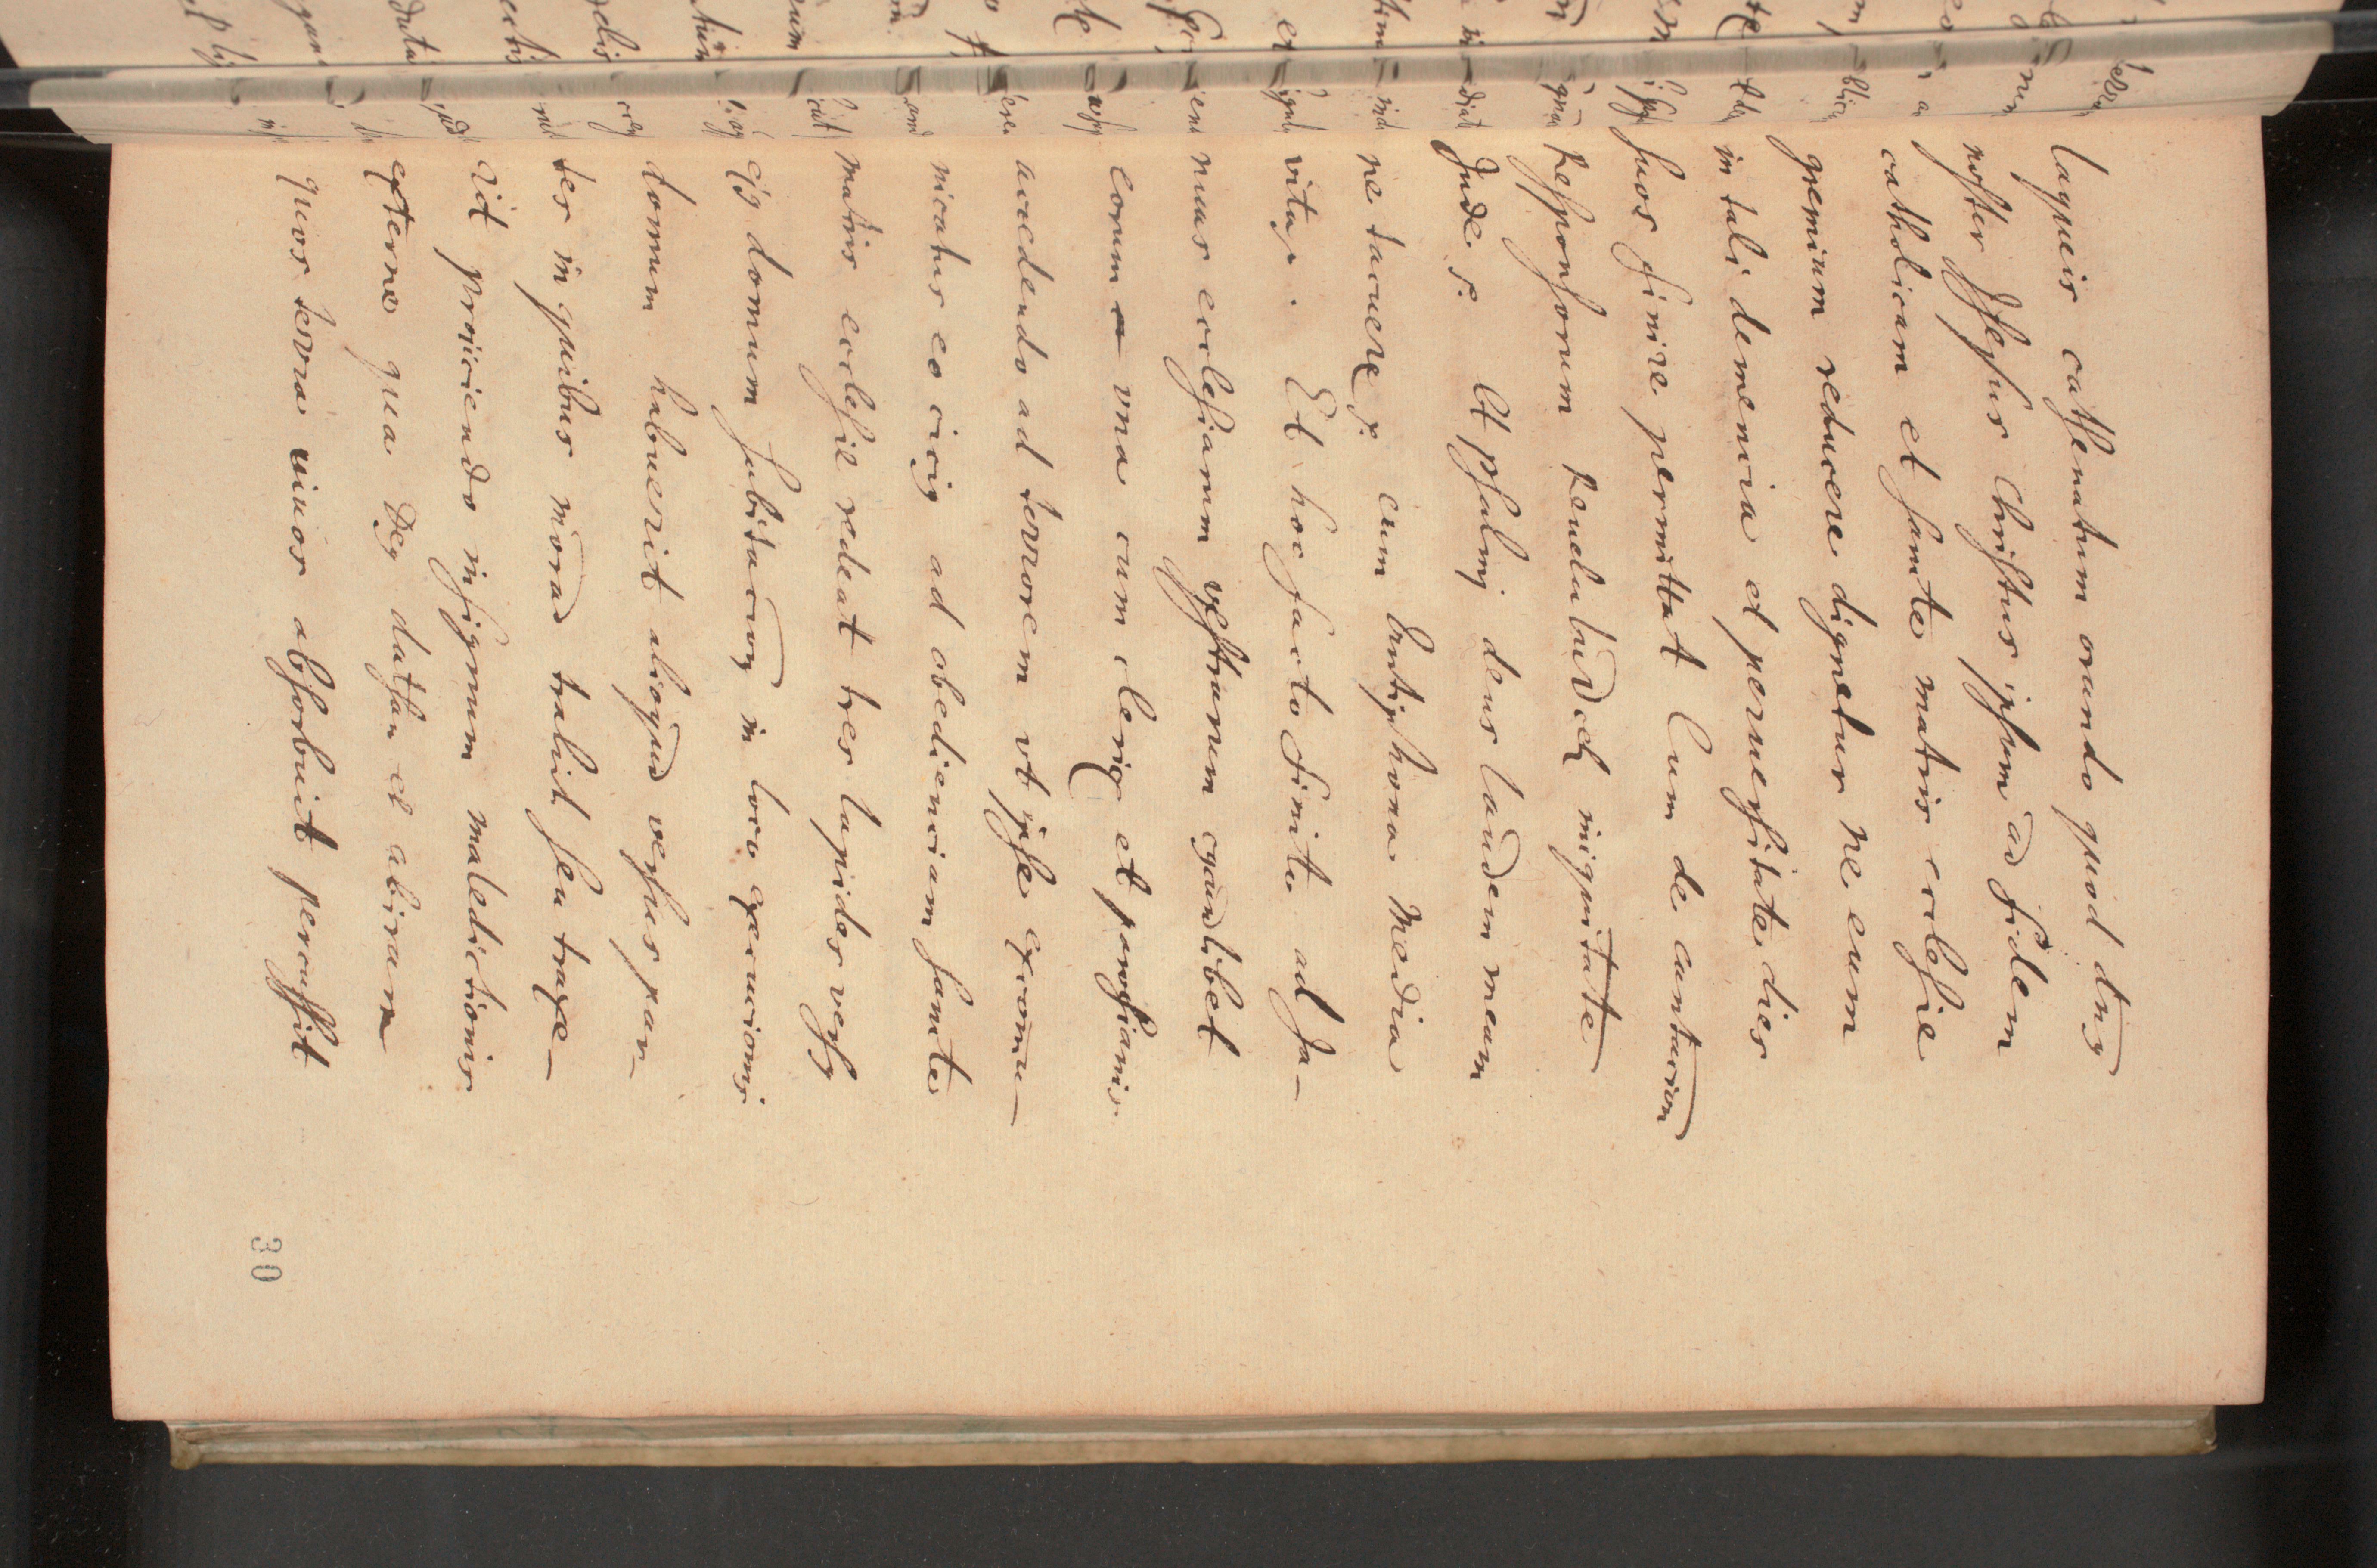 laqueis cathenatum orando quod dns
noster Jhesus Christus ipsum ad fidem
catholicam et sancte matris ecclesie
gremium reducere dignetur ne eum
in tali demencia et peruersitate dies
suos finire permittat Cum de cantacion
Responsorum Reuelabud celi iniquitate
Jude r. Et psalmi deus laudem meam
ne tacueris r. cum Antiphona Media
vita r. Et hoc facto finito ad Ja-
nuas ecclesiarum vestrarum quadlibet
eorum vna cum clericis et parochianis
accedendo ad terrorem vt ipse excomu-
nicatus eo cicius ad obedienciam sancte
matris ecclesie redeat tres lapides versus
eius domum habitacion in loco execucionis
domum habuerit alioquid versus par-
tes in quibus morad traliit seu traxe-
rid proiiciendo in signum maledictionis
externe qua deus dathan et abiram
quos terra viuos absorbuit percussit
30